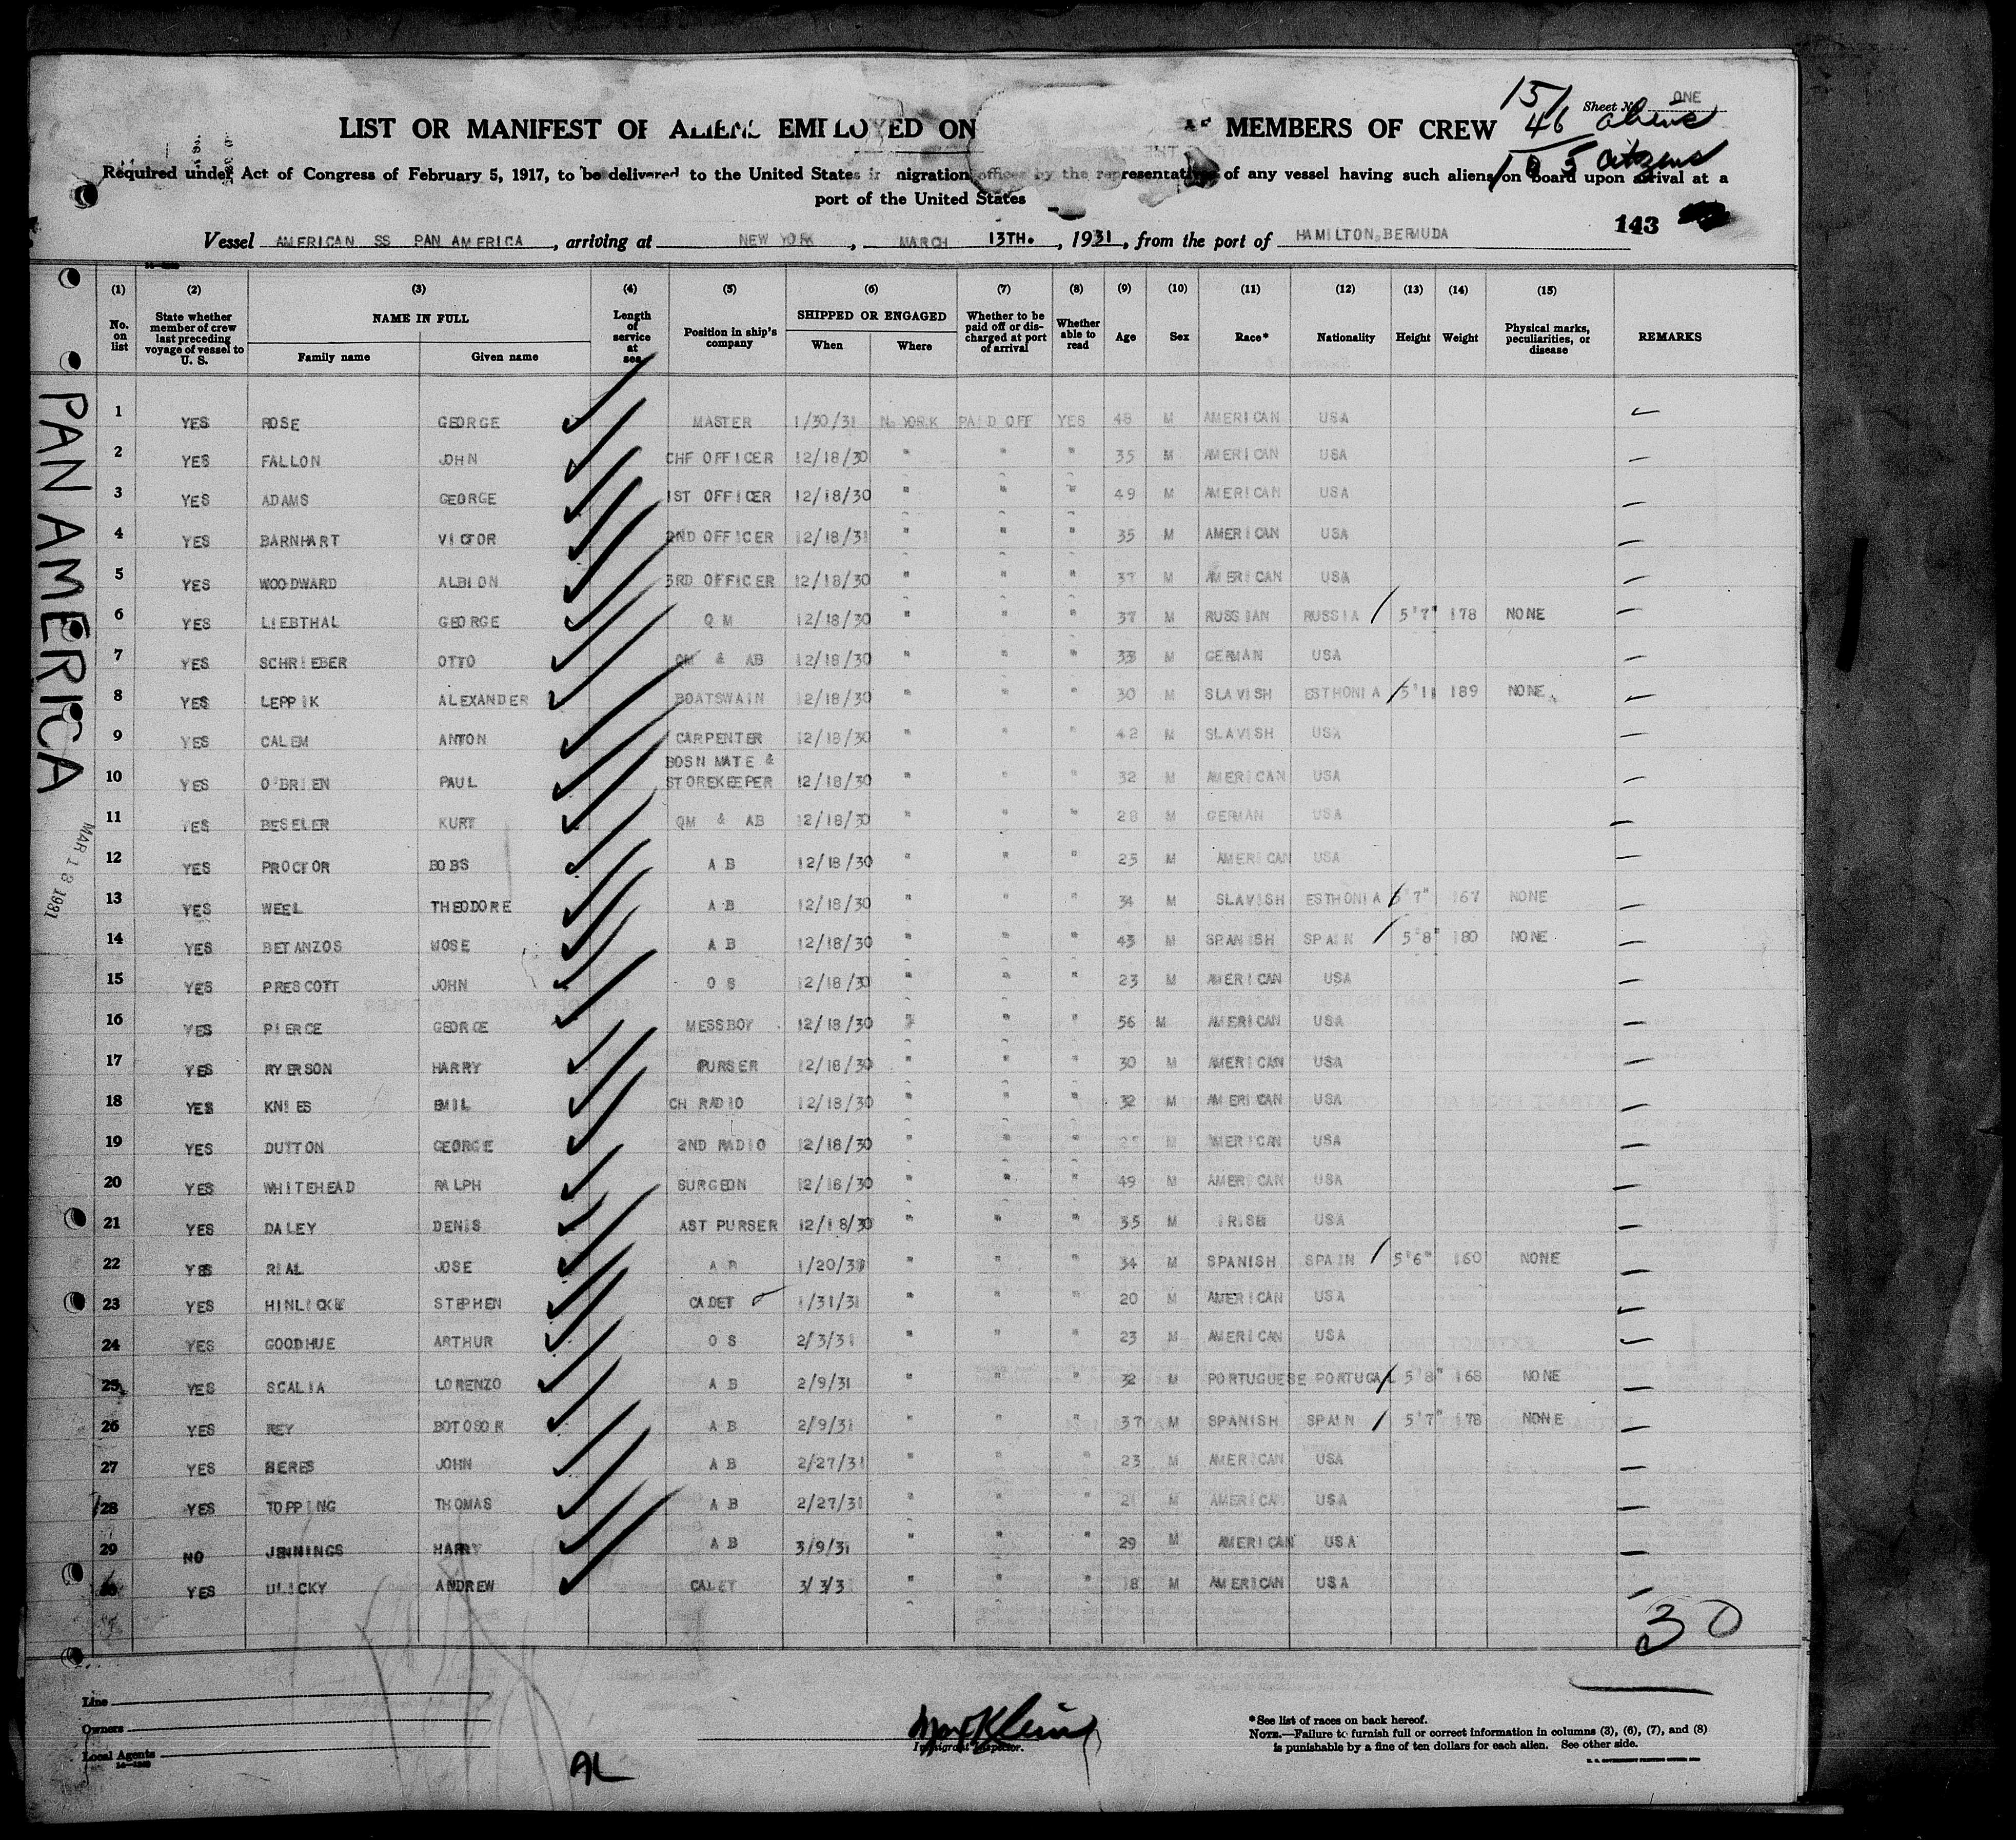 Sheet No. ONE
151
46 aliens
105 citizens
LIST OR MANIFEST OF ALIENS EMPLOYED ON MEMBERS OF CREW
Required under Act of Congress of February 5, 1917, to be delivered to the United States immigration officer by the representative of any vessel having such aliens on board upon arrival at a
port of the United States
143
Vessel AMERICAN SS PAN AMERICA, arriving at NEW YORK, MARCH 13TH., 1931, from the port of HAMILTON, BERMUDA
(1) (2) (3) (4) (5) (6) (7) (8) (9) (10) (11) (12) (13) (14) (15)
No. on list State whether member of crew last preceding voyage of vessel to U. S. NAME IN FULL Family name Given name Length of service at sea Position in ship's company SHIPPED OR ENGAGED When Where Whether to be paid off or discharged at port of arrival Whether able to read Age Sex Race* Nationality Height Weight Physical marks, peculiarities, or disease REMARKS
1 YES ROSE GEORGE MASTER 1/30/31 N. YORK PAID OFF YES 48 M AMERICAN USA
2 YES FALLON JOHN CHF OFFICER 12/18/30 " " " 35 M AMERICAN USA
3 YES ADAMS GEORGE 1ST OFFICER 12/18/30 " " " 49 M AMERICAN USA
4 YES BARNHART VICTOR 2ND OFFICER 12/18/31 " " " 35 M AMERICAN USA
5 YES WOODWARD ALBION 3RD OFFICER 12/18/30 " " " 37 M AMERICAN USA
6 YES LIEBTHAL GEORGE Q M 12/18/30 " " " 37 M RUSSIAN RUSSIA 5'7" 178 NONE
7 YES SCHRIEBER OTTO QM & AB 12/18/30 " " " 33 M GERMAN USA
8 YES LEPPIK ALEXANDER BOATSWAIN 12/18/30 " " " 30 M SLAVISH ESTHONIA 5'11 189 NONE
9 YES CALEM ANTON CARPENTER 12/18/30 " " " 42 M SLAVISH USA
10 YES O'BRIEN PAUL BOSN MATE & STOREKEEPER 12/18/30 " " " 32 M AMERICAN USA
11 YES BESELER KURT QM & AB 12/18/30 " " " 28 M GERMAN USA
12 YES PROCTOR BOBS A B 12/18/30 " " " 25 M AMERICAN USA
13 YES WEEL THEODORE A B 12/18/30 " " " 34 M SLAVISH ESTHONIA 5'7" 167 NONE
14 YES BETANZOS MOSE A B 12/18/30 " " " 43 M SPANISH SPAIN 5'8" 180 NONE
15 YES PRESCOTT JOHN O S 12/18/30 " " " 23 M AMERICAN USA
16 YES PIERCE GEORGE MESSBOY 12/18/30 " " " 56 M AMERICAN USA
17 YES RYERSON HARRY PURSER 12/18/30 " " " 30 M AMERICAN USA
18 YES KNIES EMIL CH RADIO 12/18/30 " " " 32 M AMERICAN USA
19 YES DUTTON GEORGE 2ND RADIO 12/18/30 " " " M AMERICAN USA
20 YES WHITEHEAD RALPH SURGEON 12/18/30 " " " 49 M AMERICAN USA
21 YES DALEY DENIS AST PURSER 12/18/30 " " " 35 M IRISH USA
22 YES RIAL JOSE A B 1/20/30 " " " 34 M SPANISH SPAIN 5'6" 160 NONE
23 YES STEPHEN CADET 1/31/31 " " " 20 M AMERICAN USA
24 YES GOODHUE ARTHUR O S 2/3/31 " " " 23 M AMERICAN USA
25 YES SCALIA LORENZO A B 2/9/31 " " " 32 M PORTUGUESE PORTUGAL 5'8" 168 NONE
26 YES REY BOTOSOR A B 2/9/31 " " " 37 M SPANISH SPAIN 5'7" 178 NONE
27 YES BERES JOHN A B 2/27/31 " " " 23 M AMERICAN USA
28 YES TOPPING THOMAS A B 2/27/31 " " " 21 M AMERICAN USA
29 NO JENNINGS HARRY A B 3/9/31 " " " 29 M AMERICAN USA
30 YES ULICKY ANDREW CADET 3/3/3 " " " 18 M AMERICAN USA
30
PAN AMERICA
MAR 13 1931
Line
Owners
Local Agents
AL
Immigrant Inspector.
*See list of races on back hereof.
NOTE.—Failure to furnish full or correct information in columns (3), (6), (7), and (8)
is punishable by a fine of ten dollars for each alien. See other side.